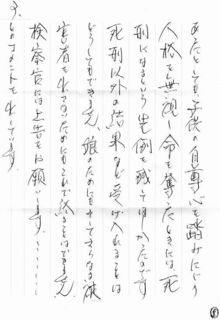 あなたとしても、子供の自尊心を踏みにじり
人格を無視し命を奪ったときには、死
刑になるという実例を残してほしかったです
死刑以外の結果など受け入れることは
どうしてもできません 娘のためにもそしてさらなる被
害者を出さないためにもこれで終ることはできません
検察官には上告をお願いします。……
とのコメントを出しています。
す。